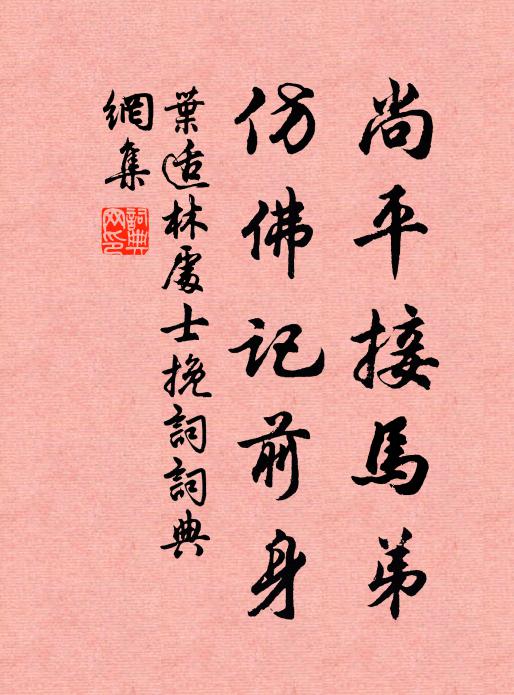 尚平接馬弟
仿佛記前身
葉适林處士挽詞詞典
網集
詞典網印